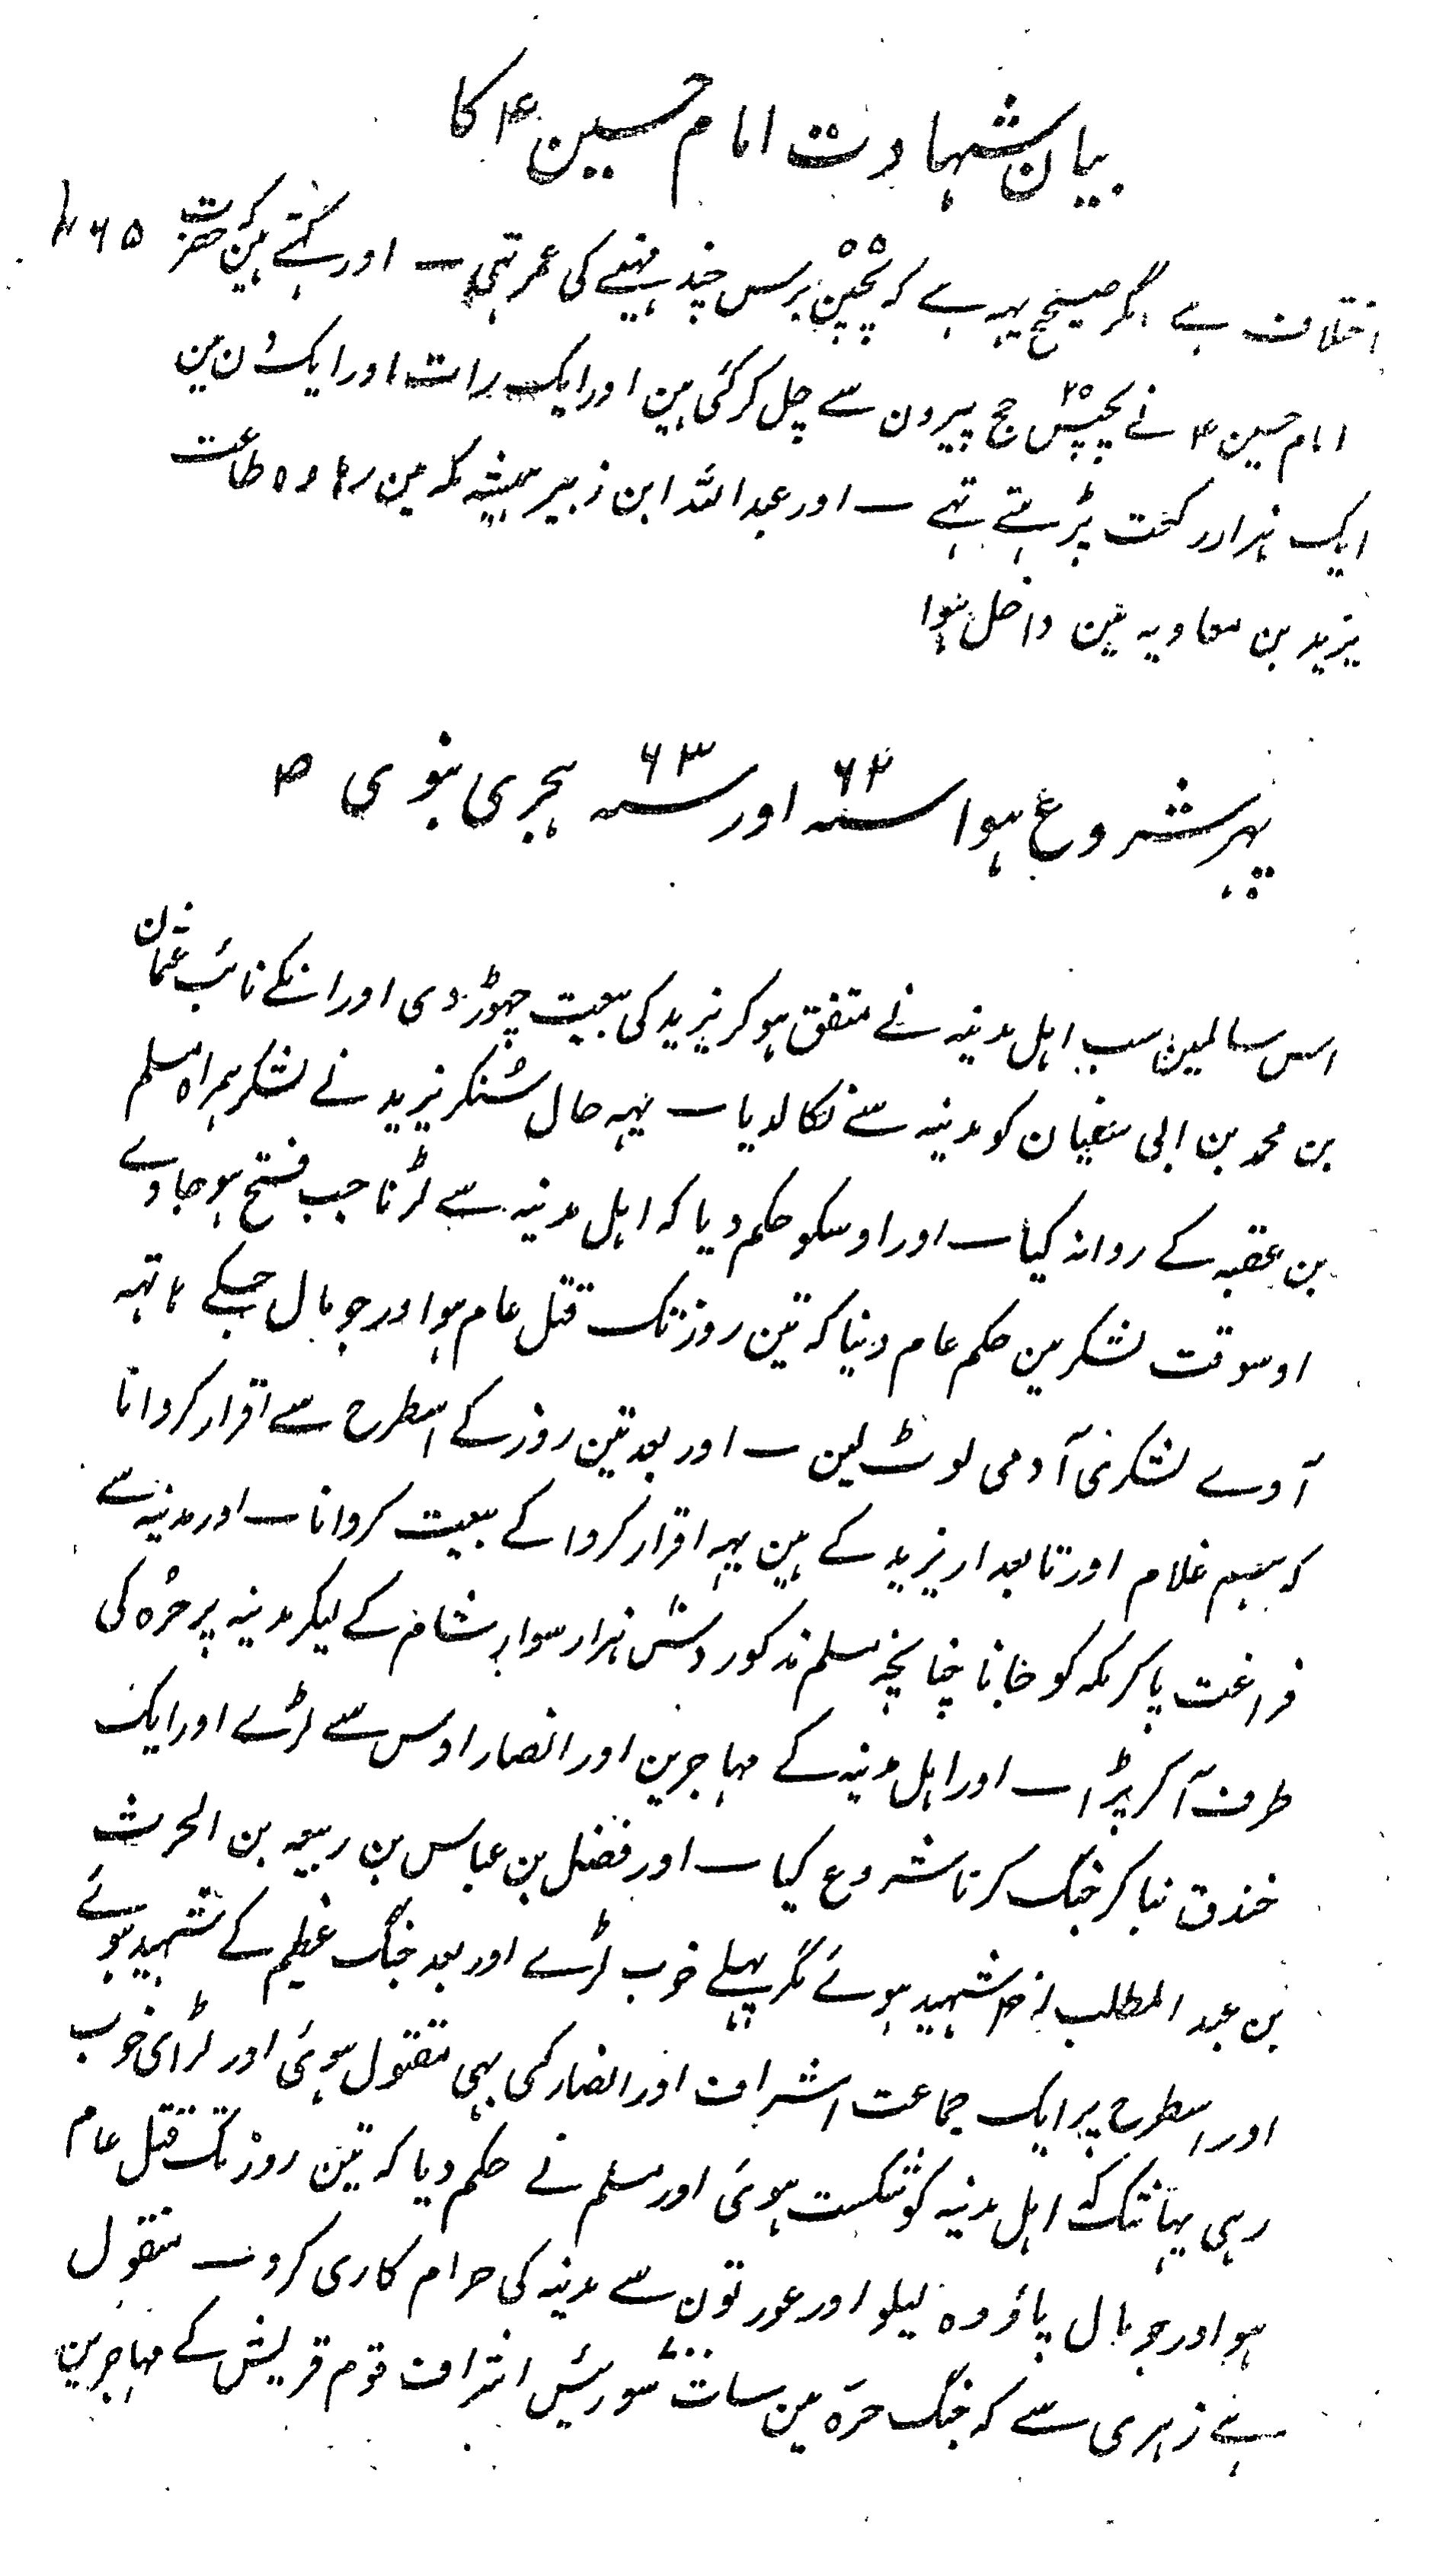 بیان شہادت امام حسین ؑ کا
۶۵
اختلاف ہے مگر صیحح یہہ ہے کہ پچپن ۵۵ برس چند مہینے کی عمر تہی ـ اور کہتے ہین کہ حضرت
امام حسین ؑ نے پچیس ۲۵ حج پیرون سے چل کر کئی ہین اور ایک رات اور ایک دن مین
ایک ہزار رکعت پڑہتے تہے ـ اور عبد اللہ ابن زبیر ہمیشہ مکہ مین رہا وہ طاعت
یزید بن معاویہ مین داخل نہوا
پہر شروع ہوا سنہ ۶۲ اور سنہ ۶۳ ہجری نبوی ؐ
اس سالمین سب اہل مدنیہ نے متفق ہو کر یزید کی بیعت چہوڑ دی اور انکے نائب عثمان
بن محمد بن ابی سفیان کو مدنیہ سے نکالدیا ـ یہہ حال سُنکر یزید نے لشکر ہمراہ مسلم
بن عقبہ کے روانہ کیا ـ اور اوسکو حکم دیا کہ اہل مدنیہ سے لڑنا جب فتح ہو جاوے
اوسوقت لشکر مین حکم عام دینا کہ تین روز تک قتل عام ہو اور جو مال جسکے ہاتہہ
آوے لشکری آدمی لوٹ لین ـ اور بعد تین روز کے اسطرح سے اقرار کروانا
کہ ہم غلام اور تابعدار یزید کے ہین یہہ اقرار کروا کے بیعت کروانا ـ اور مدنیہ سے
فراغت پا کر مکہ کو جانا چنانچہ مسلم مذکور دس ہزار سوار شام کے لیکر مدنیہ پر حرّہ کی
طرف آ کر پڑا ـ اور اہل مدنیہ کے مہاجرین اور انصار اوس سے لڑے اور ایک
خندق بنا کر جنگ کرنا شروع کیا ـ اور فضل بن عباس بن ربیعہ بن الحرث
بن عبد المطلب شہید ہوئے مگر پہلے خوب لڑے اور بعد جنگ عظیم کے شہید ہوئے
اور اسطرح پر ایک جماعت اشراف اور انصار کی بہی مقتول ہوئی اور لڑائی خوب
رہی یہانتک کہ اہل مدنیہ کو شکست ہوئی اور مسلم نے حکم دیا کہ تین روز تک قتل عام
ہو اور جو مال پاؤ وہ لیلو اور عورتون سے مدنیہ کی حرام کاری کرو ـ منقول
ہے زہری سے کہ جنگ حرّہ مین سات ۷۰۰ سو رئیس اشراف قوم قریش کے مہاجرین